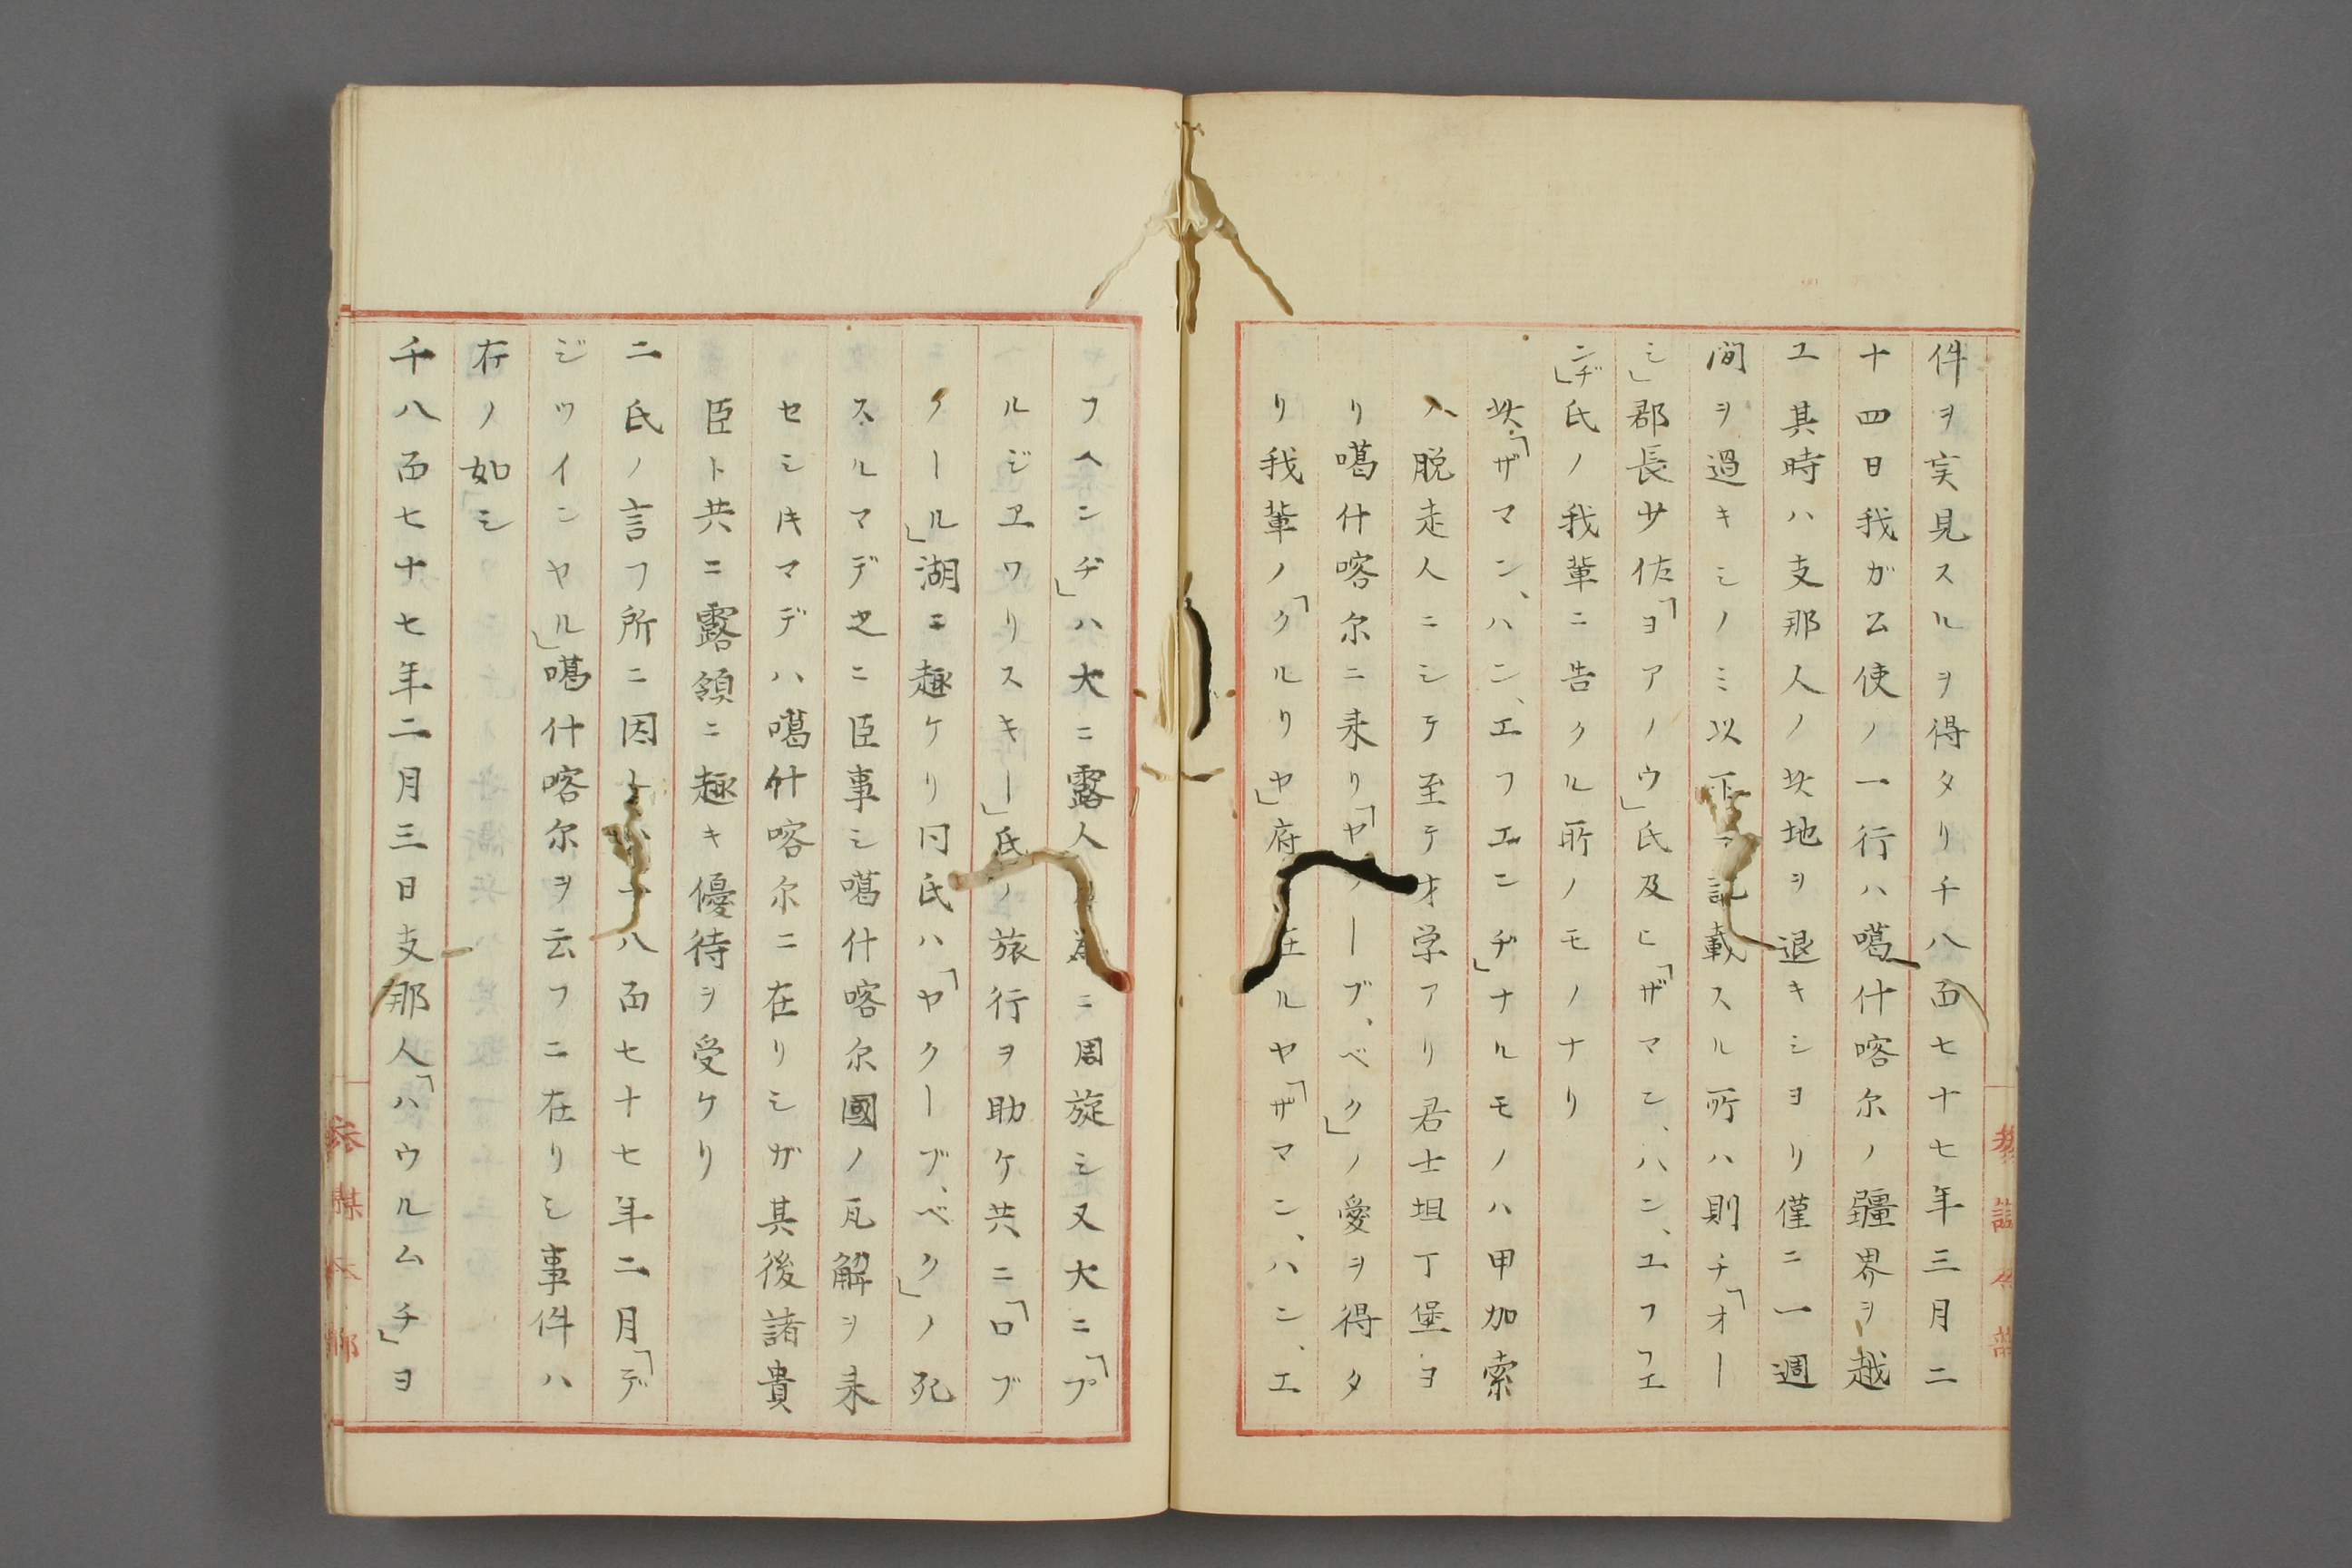 件ヲ実見スルヲ得タリ千八百七十七年三月二
十四日我ガ公使ノ一行ハ噶什喀尔ノ疆界ヲ越
エ其時ハ支那人ノ此地ヲ退キシヨリ僅ニ一週
間ヲ過キシノミ以下記載スル所ハ則チ「オー
シ」郡長少佐「ヨアノウ」氏及ヒ「ザマン、ハン、エフエ
ンヂ」氏ノ我輩ニ告クル所ノモノナリ
此「ザマン、ハン、エフエンヂ」ナルモノハ甲加索
ノ脱走人ニシテ至テ才学アリ君士坦丁堡ヨ
リ噶什喀尔ニ来リ「ヤクーブ、ベク」ノ愛ヲ得タ
リ我輩ノ「クルリヤ」府ニ在ルヤ「ザマン、ハン、エ
フヘンヂ」ハ大ニ露人ノ為ニ周旋シ又大ニ「プ
ルジエワリスキー」氏ノ旅行ヲ助ケ共ニ「ロブ
ノール」湖ニ趣ケリ同氏ハ「ヤクーブ、ベク」ノ死
スルマデ之ニ臣事シ噶什喀尔國ノ瓦解ヲ来
セシ𪜈マデハ噶什喀尔ニ在リシガ其後諸貴
臣ト共ニ露領ニ趣キ優待ヲ受ケリ
二氏ノ言フ所ニ因 八百七十七年二月「デ
ジツインヤル」噶什喀尔ヲ云フニ在リシ事件ハ
在ノ如シ
千八百七十七年二月三日支那人「ハウルムチ」ヨ
参謀本部
参謀本部